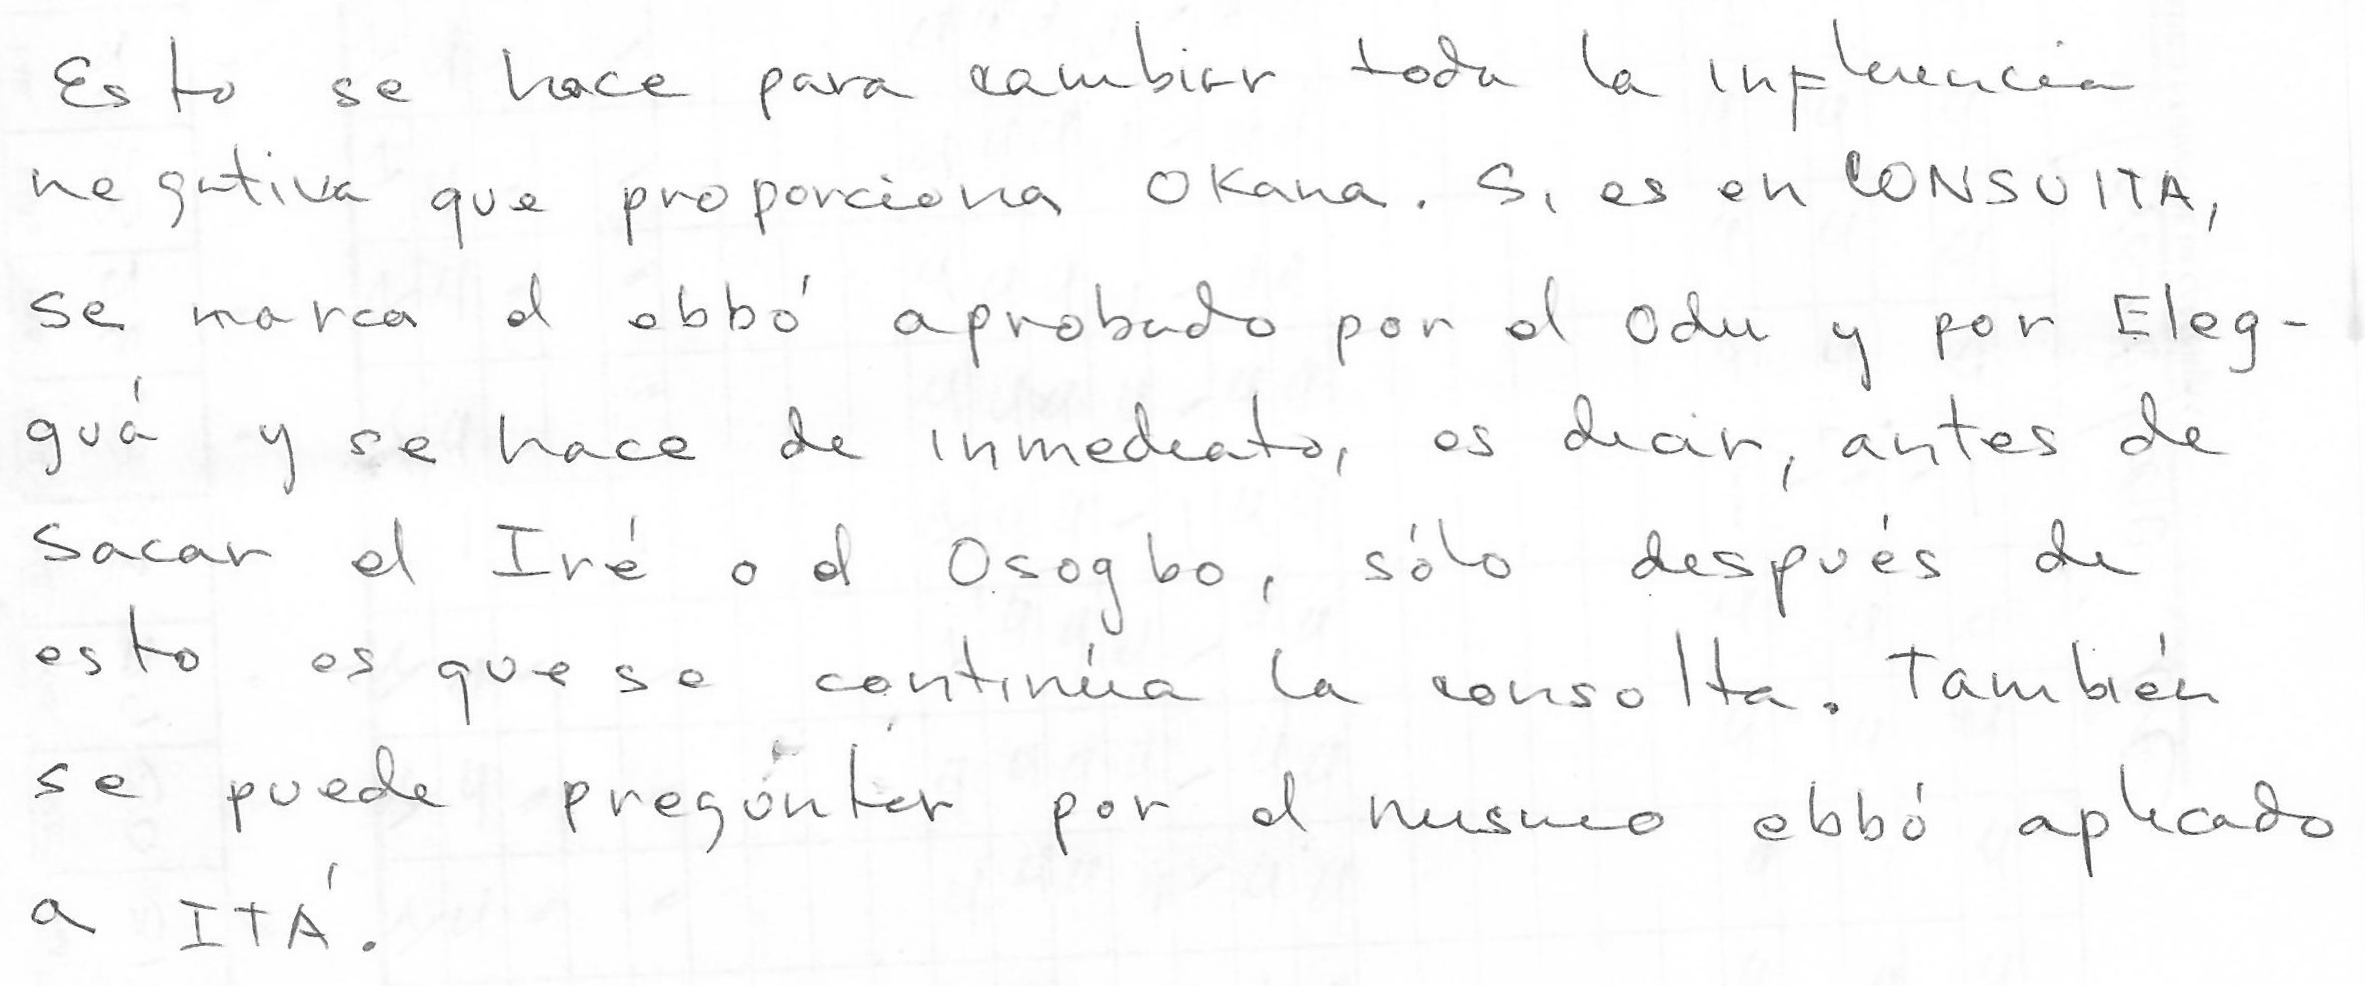 Esto se hace para cambiar toda la influencia
negativa que proporciona Okana. Si es en CONSULTA,
se marca el ebbó aprobado por el Odu y por Eleg-
guá y se hace de inmediato, es decir, antes de
sacar el Iré o el Osogbo, sólo después de
esto es que se continúa la consulta. También
se puede preguntar por el mismo ebbó aplicado
a ITÁ.